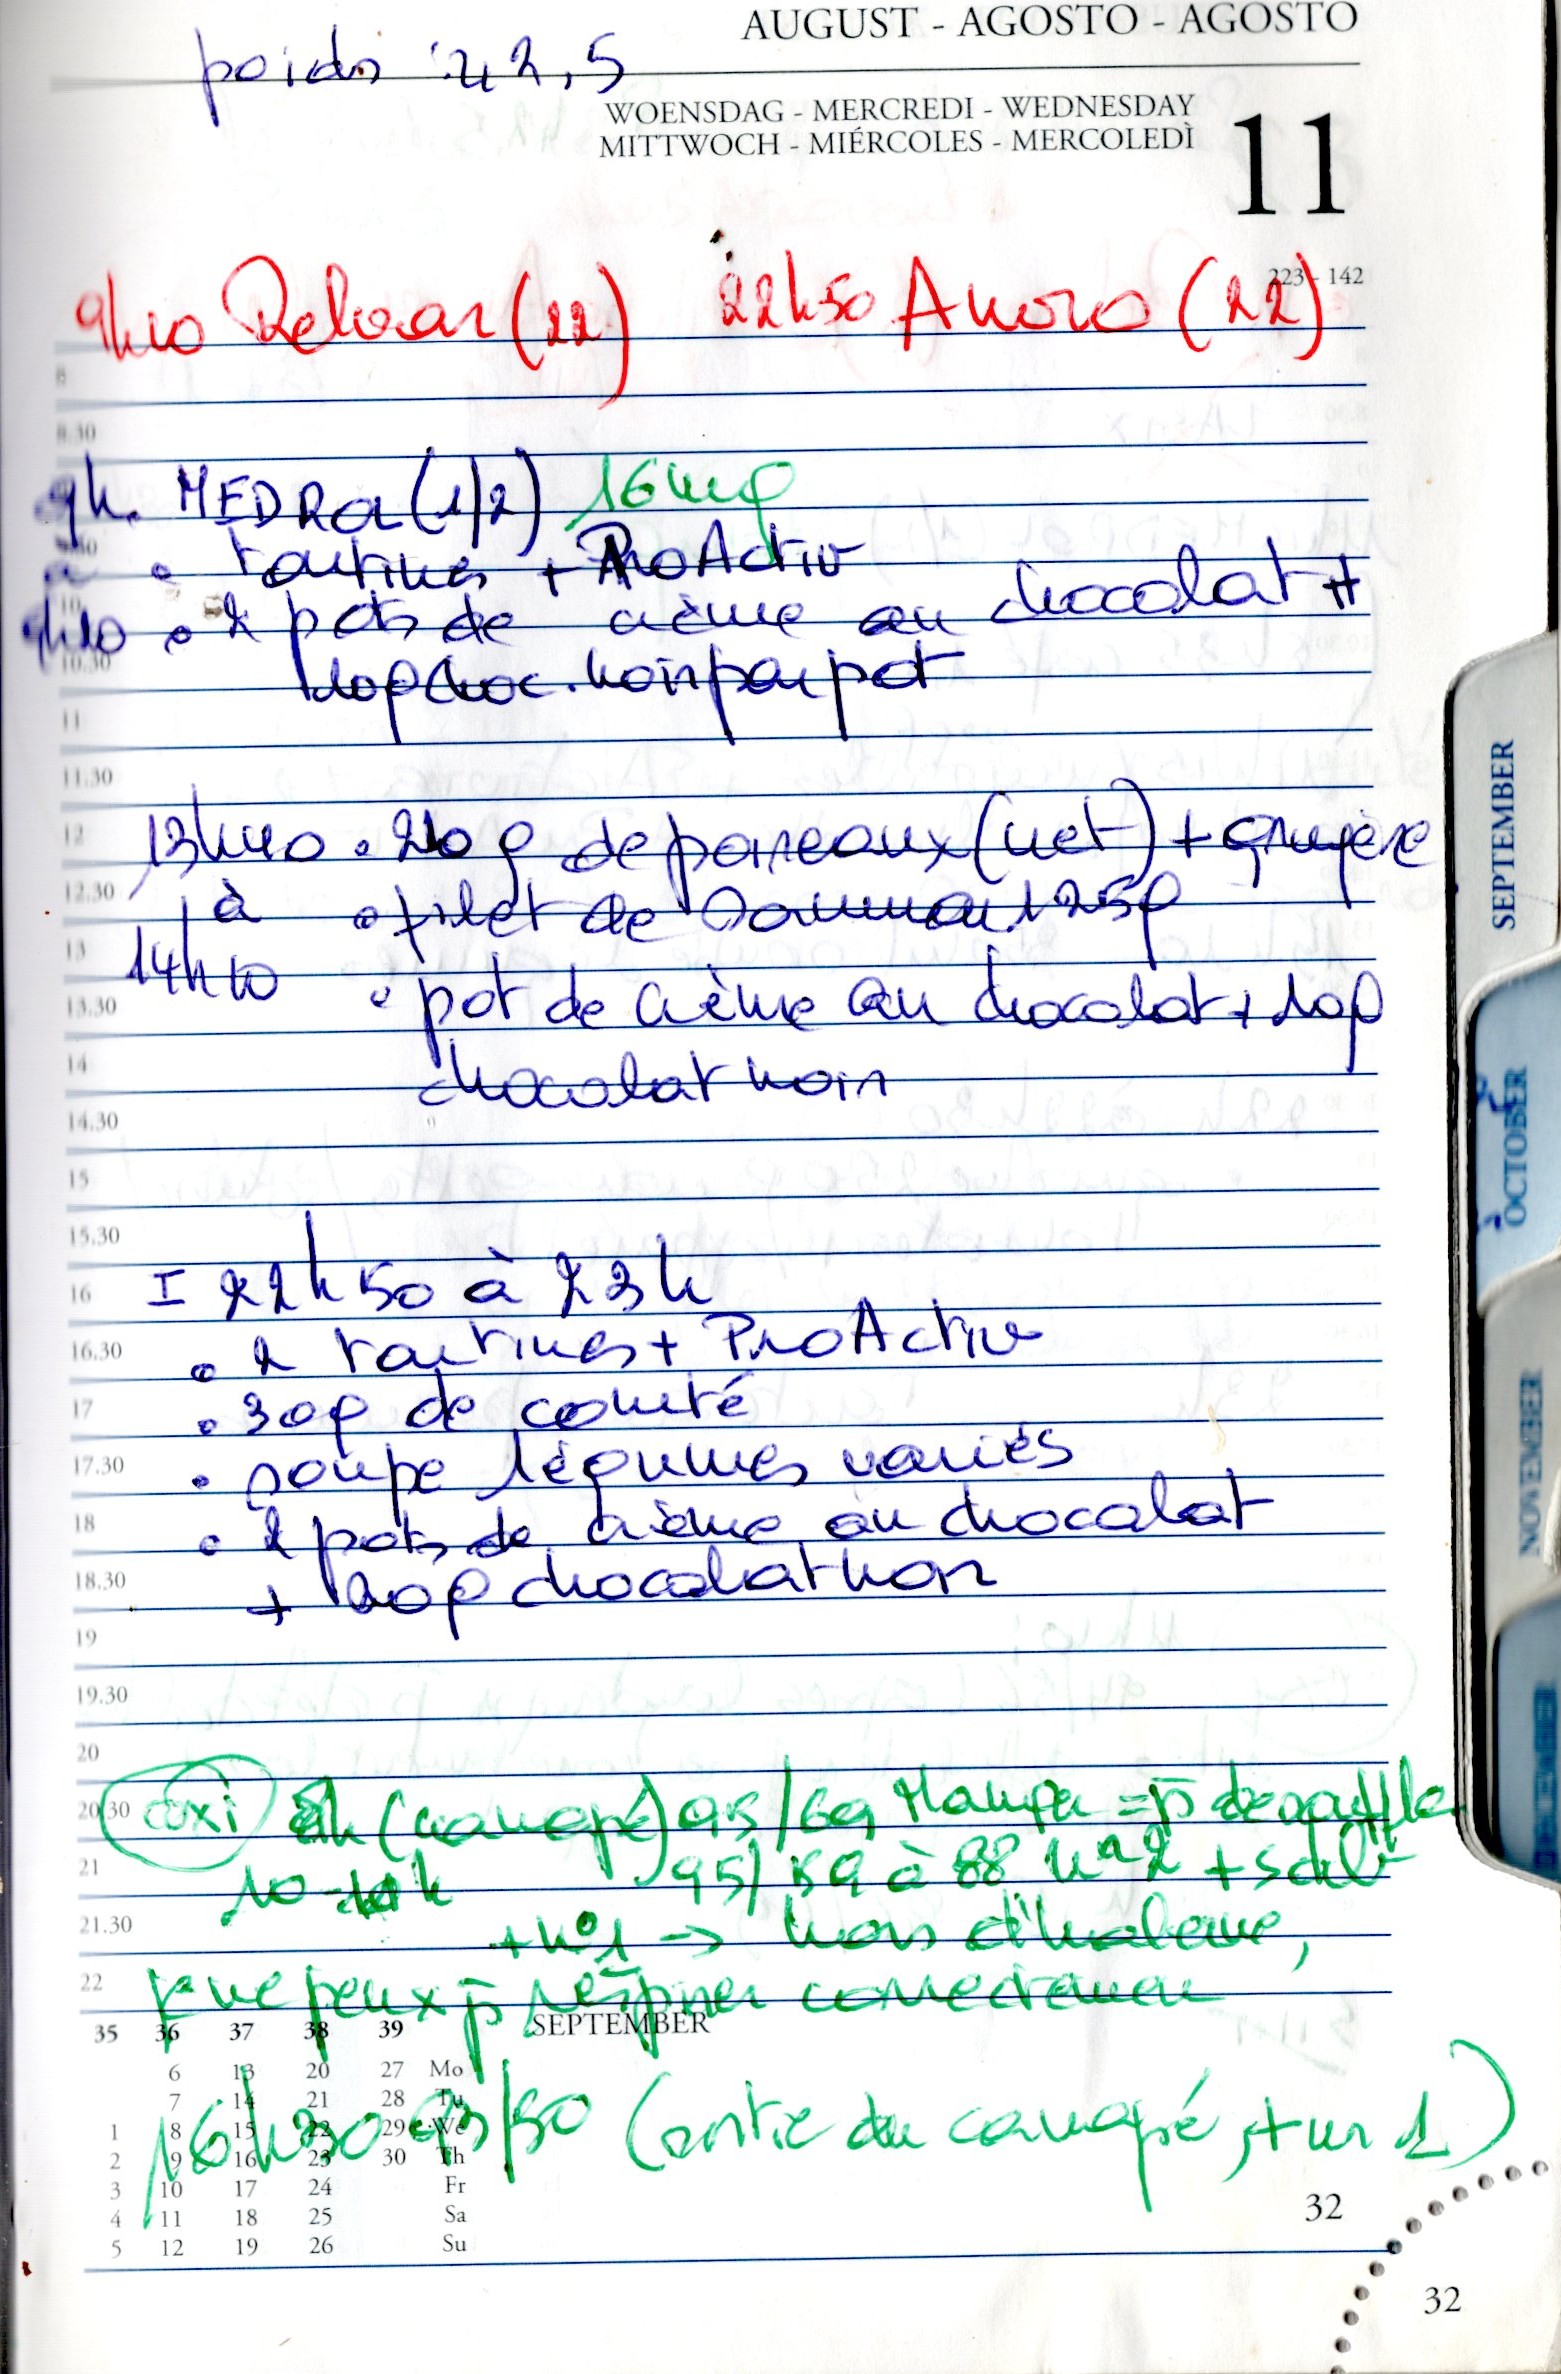 AUGUST - AGOSTO - AGOSTO
poids : 42,5
WOENSDAG - MERCREDI - WEDNESDAY
MITTWOCH - MIÉRCOLES - MERCOLEDÌ
11
223 - 142
9h10 Relvar (22) 22h50 Anoro (22)
8
8.30
9h. MEDRol (1/2) 16mg
à • tartines + ProActiv
9h20 • 2 pots de crème au chocolat +
10.30
10g choc. noir par pot
11
11.30
12
13h40 • 210 g de poireaux (net) + gruyère
12.30
à • filet de saumon 125g
13
14h10 • pot de crème au chocolat + 10g
13.30
14
chocolat noir
14.30
15
15.30
16
I 22h50 à 23h
16.30
• 2 tartines + ProActiv
17
• 30g de comté
17.30
• soupe légumes variés
18
• 2 pots de crème au chocolat
18.30
+ 20g chocolat noir
19
19.30
20
20.30
oxi 8h (canapé) 95/69 = p
21
10-11h 95/59 à 88 n° 2 +
21.30
+ n°1 → hors d'haleine,
22
je ne peux p respirer correctement
35 36 37 38 39 SEPTEMBER
6 13 20 27 Mo
7 14 21 28 Tu
1 8 15 22 29 We
2 9 16 23 30 Th
3 10 17 24 Fr
4 11 18 25 Sa
5 12 19 26 Su
16h30 93/50 (sortie du canapé, + sur 1)
32
32
SEPTEMBER
OCTOBER
NOVEMBER
DECEMBER